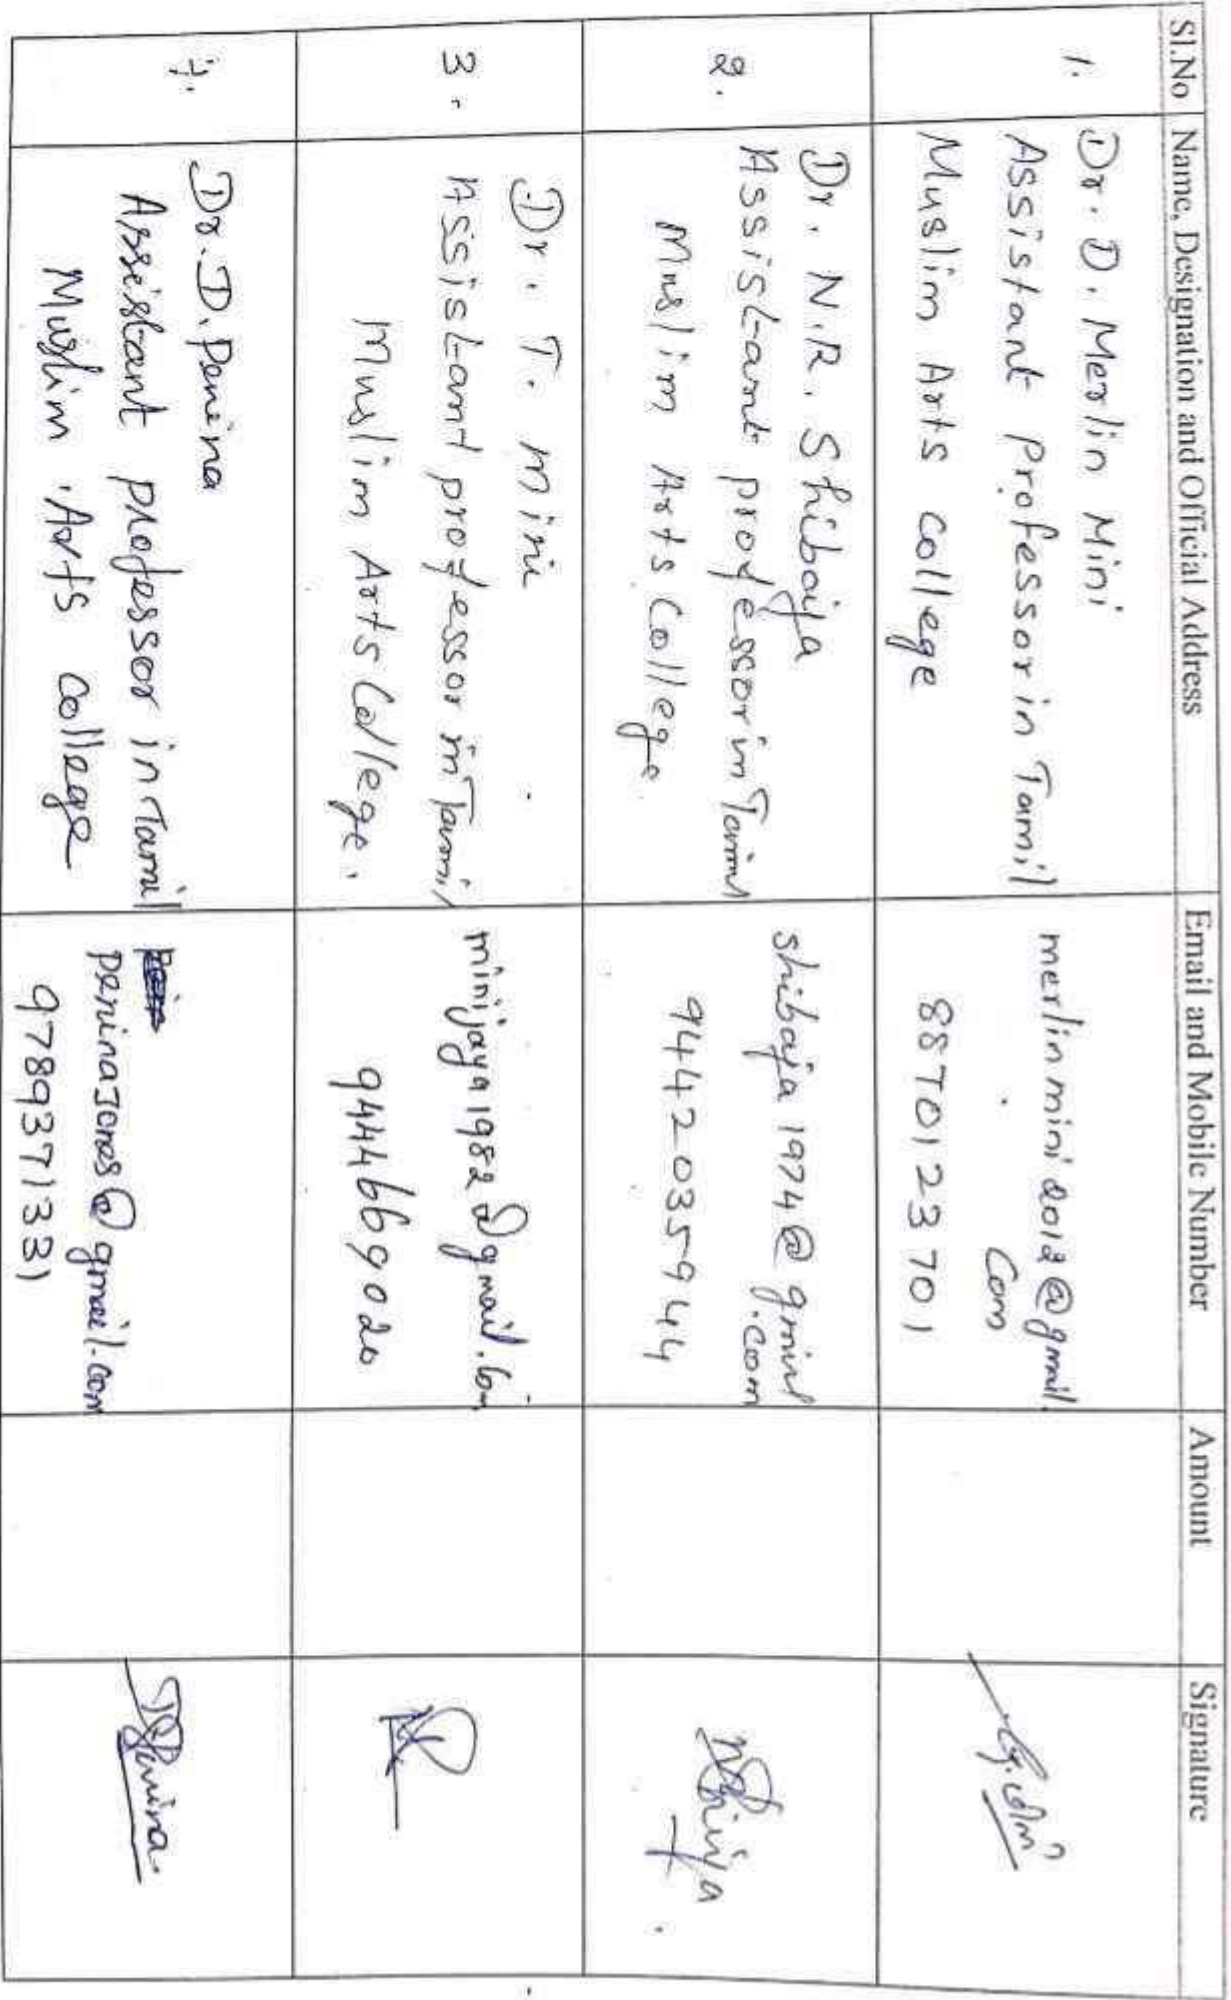 Sl.No Name, Designation and Official Address Email and Mobile Number Amount Signature
1.
Dr. D. Merlin Mini
Assistant Professor in Tamil
Muslim Arts College
merlinmini2012@gmail.
com
8870123701
2.
Dr. N.R. Shibaija
Assistant professor in Tamil
Muslim Arts College.
shibaja1974@gmail
.com
9442035944
3.
Dr. T. mini
Assistant professor in Tamil
Muslim Arts College.
minijaya1982@gmail.com
9444669020
4.
Dr. D. Penina
Assistant professor in Tamil
Muslim Arts college
peninajones@gmail.com
9789371331
Penina